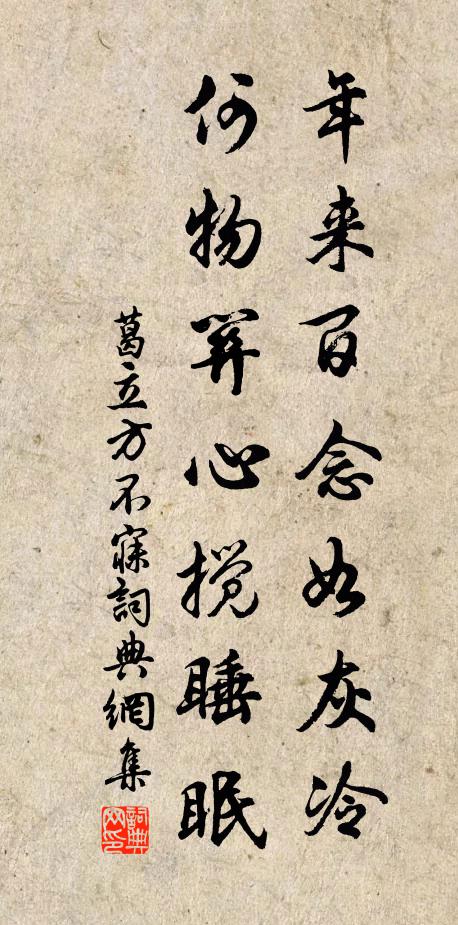 年来百念如灰冷
何物关心搅睡眠
葛立方不寐詞典網集
詞典网印